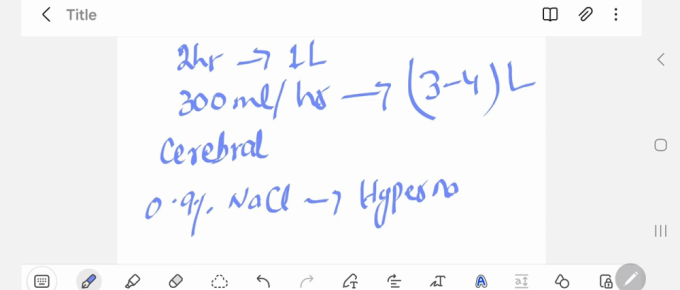 Title
2hr → 1L
300ml/hr → (3-4) L
Cerebral
0.9% NaCl → Hyperna